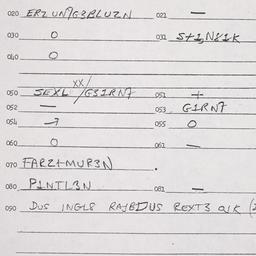 020 ERZ UN7G3BLUZN 021 —
030 O 031 S+1,N21K
040 O
XX/
050 SEXL /G31RN7 051 +
052 — 053 G1RN7
054 → 055 O
060 O 061 —
070 FARZ+MUR3N .
080 P1NTL3N 081 —
090 DUS INGL8 RAJBDUS REXT3